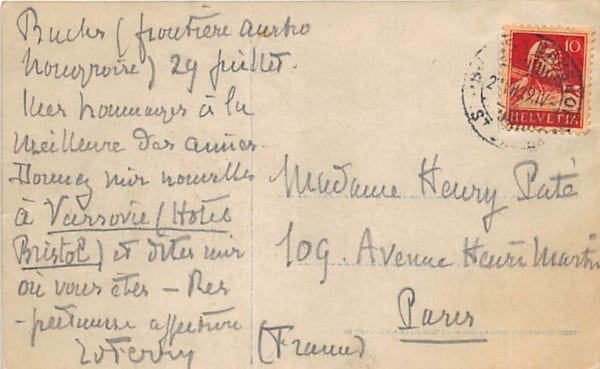 Buchs (frontière austro
hongroise) 29 juillet.
Mes hommages à la
meilleure des amies.
Donnez moi nouvelles
à Varsovie (Hotel
Bristol) et dites moi
où vous êtes – Res
-pectueuse affection
Madame Henry Paté
109. Avenue Henri Martin
Paris
(France)
10
HELVETIA